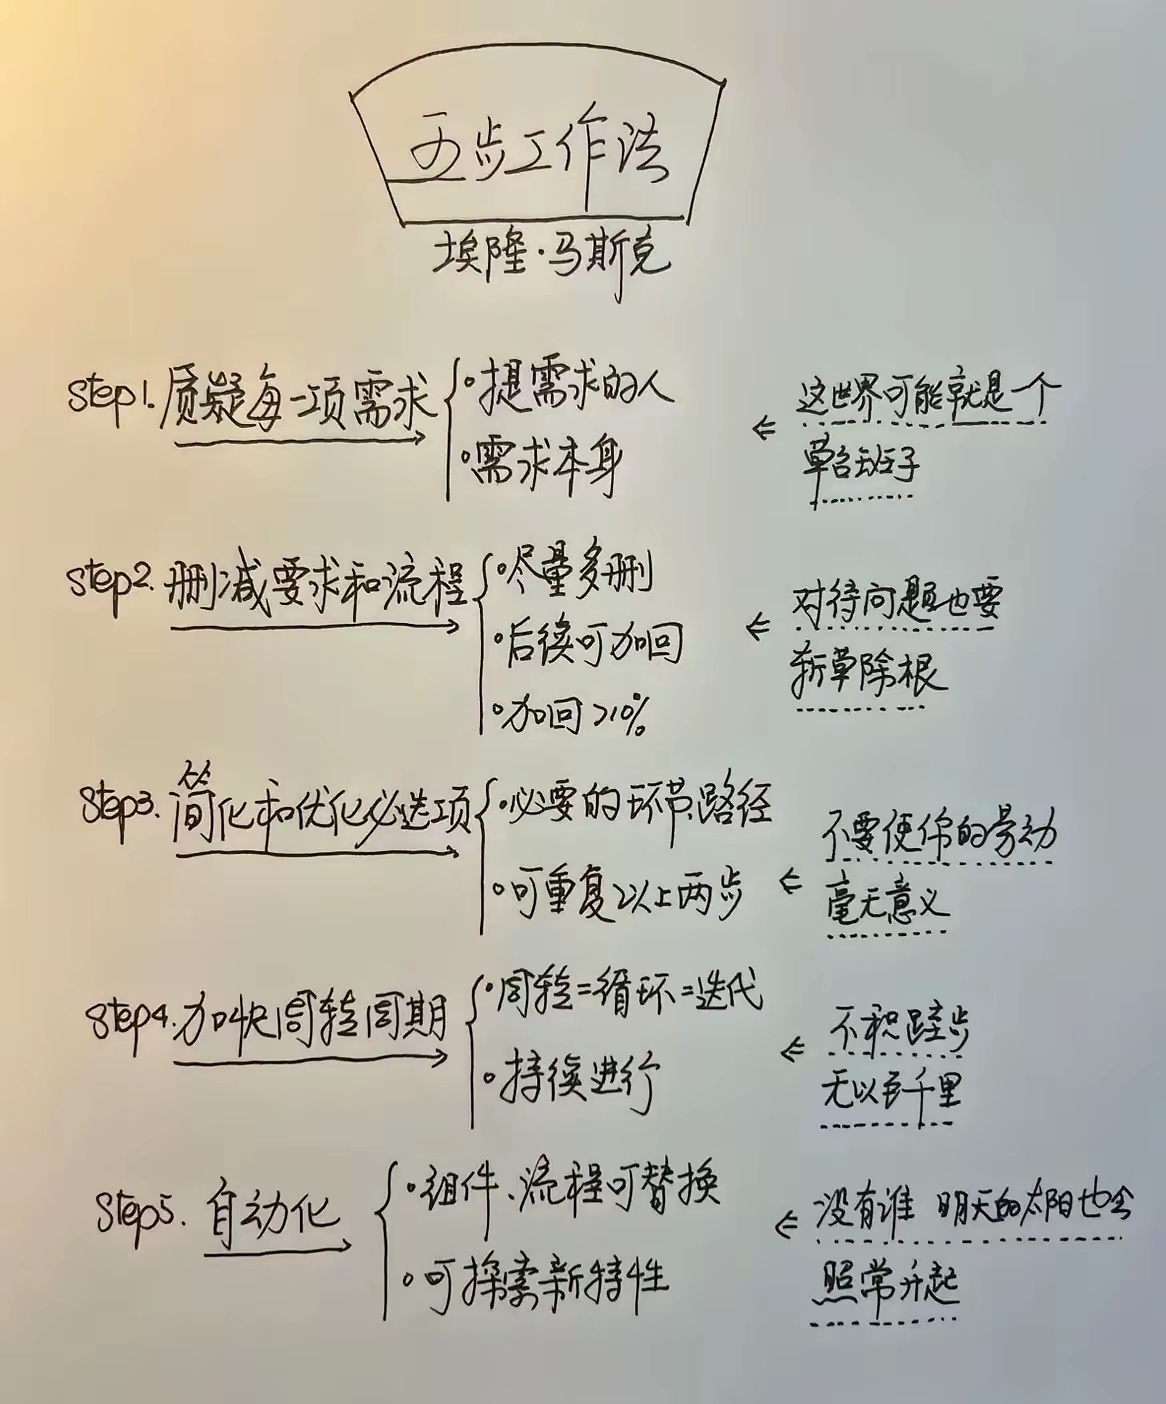 五步工作法
埃隆·马斯克
Step1. 质疑每一项需求
·提需求的人
·需求本身
⇐ 这世界可能就是一个
草台班子
Step2. 删减要求和流程
·尽量多删
·后续可加回
·加回>10%
⇐ 对待问题也要
斩草除根
Step3. 简化和优化必选项
·必要的环节、路径
·可重复以上两步
⇐ 不要使你的劳动
毫无意义
Step4. 加快周转周期
·周转=循环=迭代
·持续进行
⇐ 不积跬步
无以至千里
Step5. 自动化
·组件、流程可替换
·可探索新特性
⇐ 没有谁 明天的太阳也会
照常升起